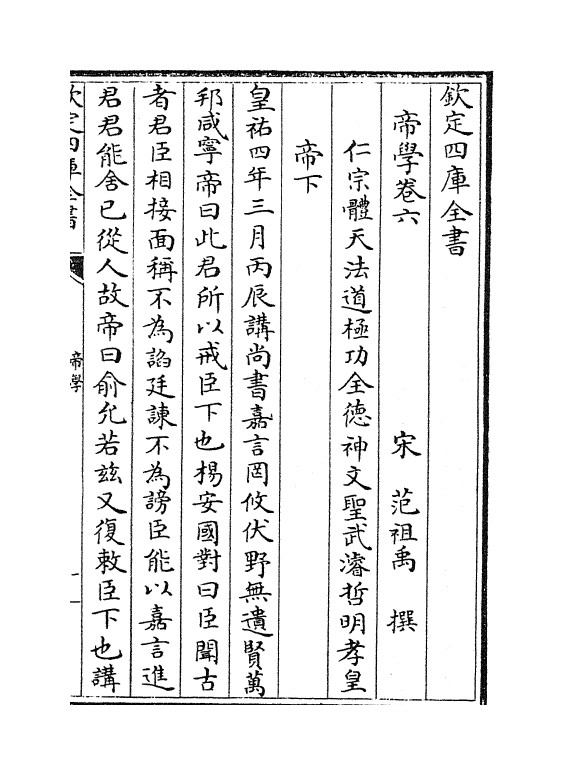 欽定四庫全書
帝學卷六
宋 范祖禹 撰
仁宗體天法道極功全徳神文聖武濬哲明孝皇
帝下
皇祐四年三月丙辰講尚書嘉言罔攸伏野無遺賢萬
邦咸寧帝曰此君所以戒臣下也楊安國對曰臣聞古
者君臣相接面稱不為謟廷諫不為謗臣能以嘉言進
君君能舍已從人故帝曰俞允若兹又復敕臣下也講
欽定四庫全書
帝學
一